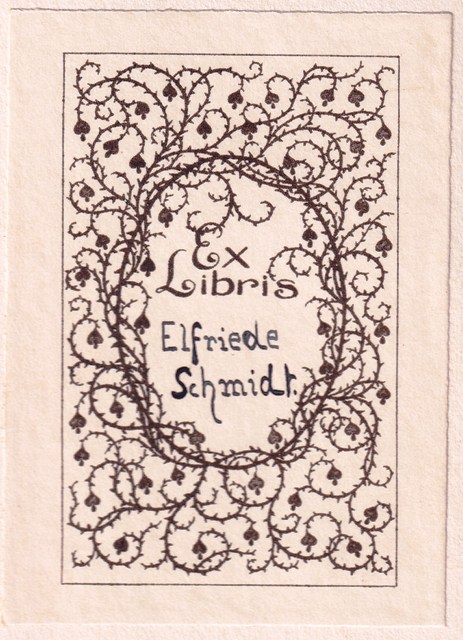 Ex
Libris
Elfriede
Schmidt.